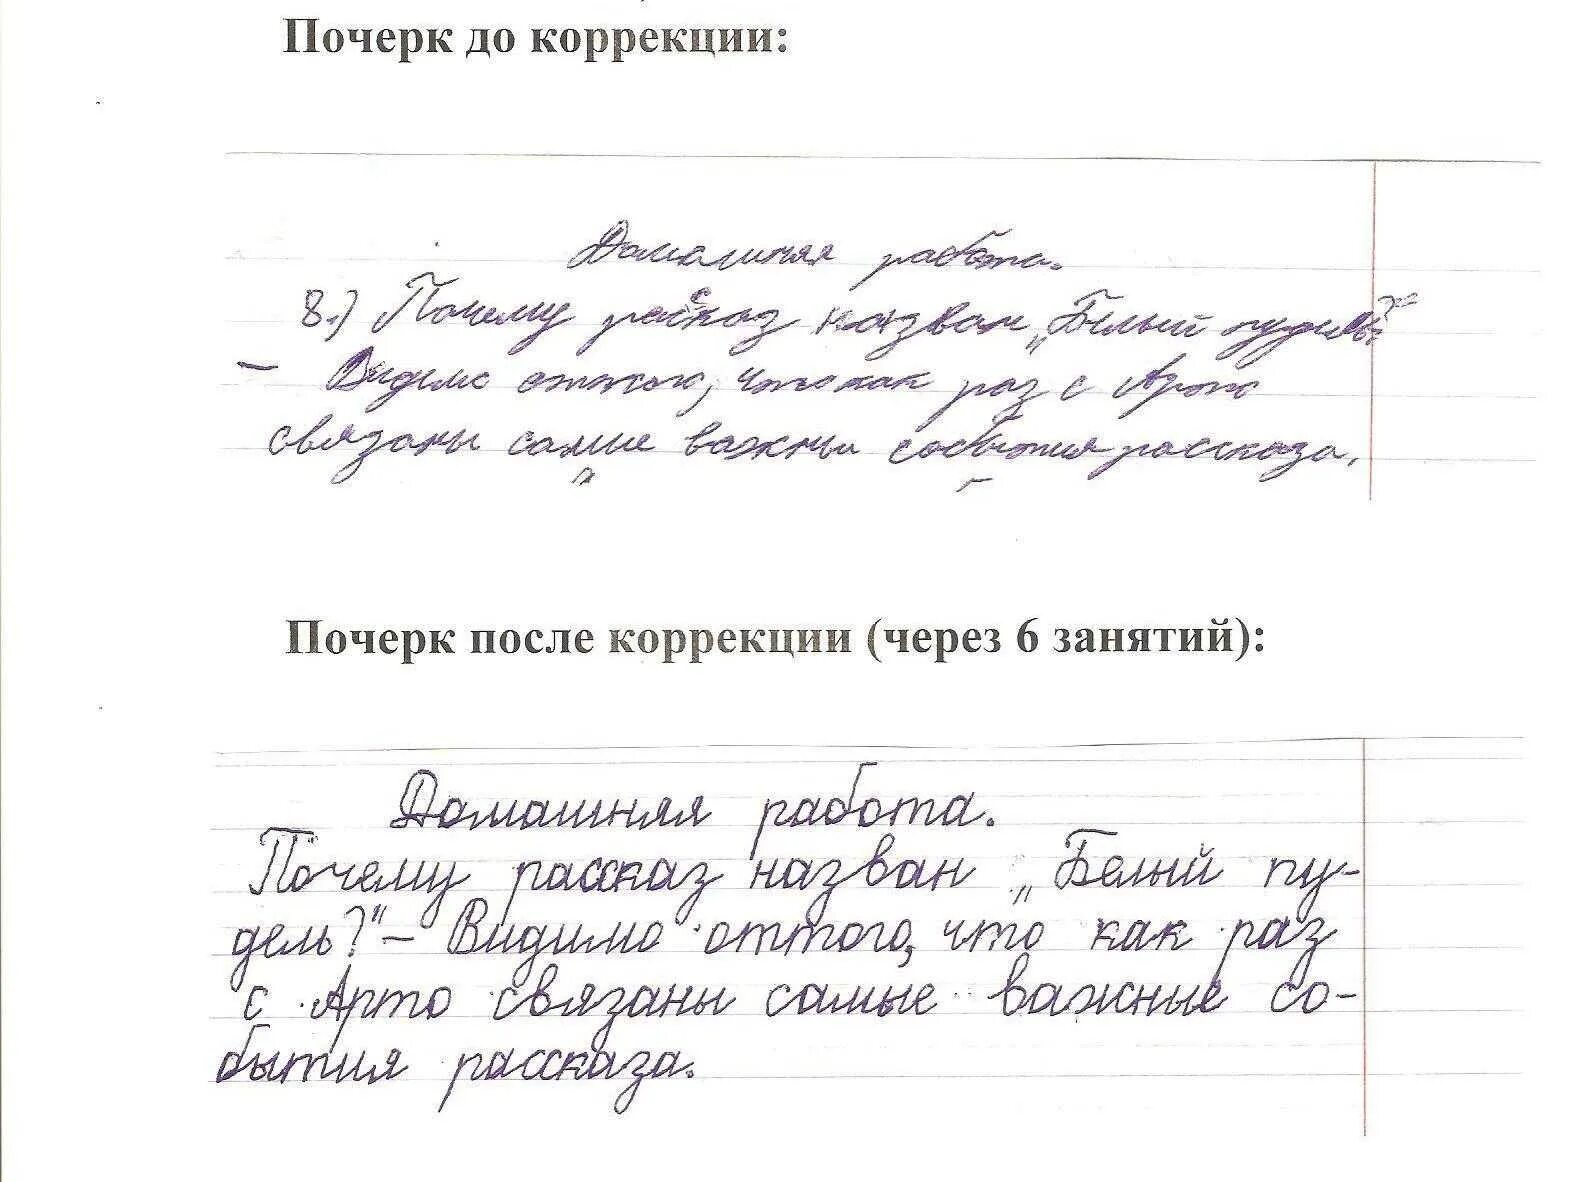 Почерк до коррекции:
Домашняя работа.
8.) Почему рассказ назван „Белый пудель?"
– Видимо оттого, что как раз с Арто
связаны самые важны события рассказа.
Почерк после коррекции (через 6 занятий):
Домашняя работа.
Почему рассказ назван „Белый пу-
дель?" – Видимо оттого, что как раз
с Арто связаны самые важные со-
бытия рассказа.